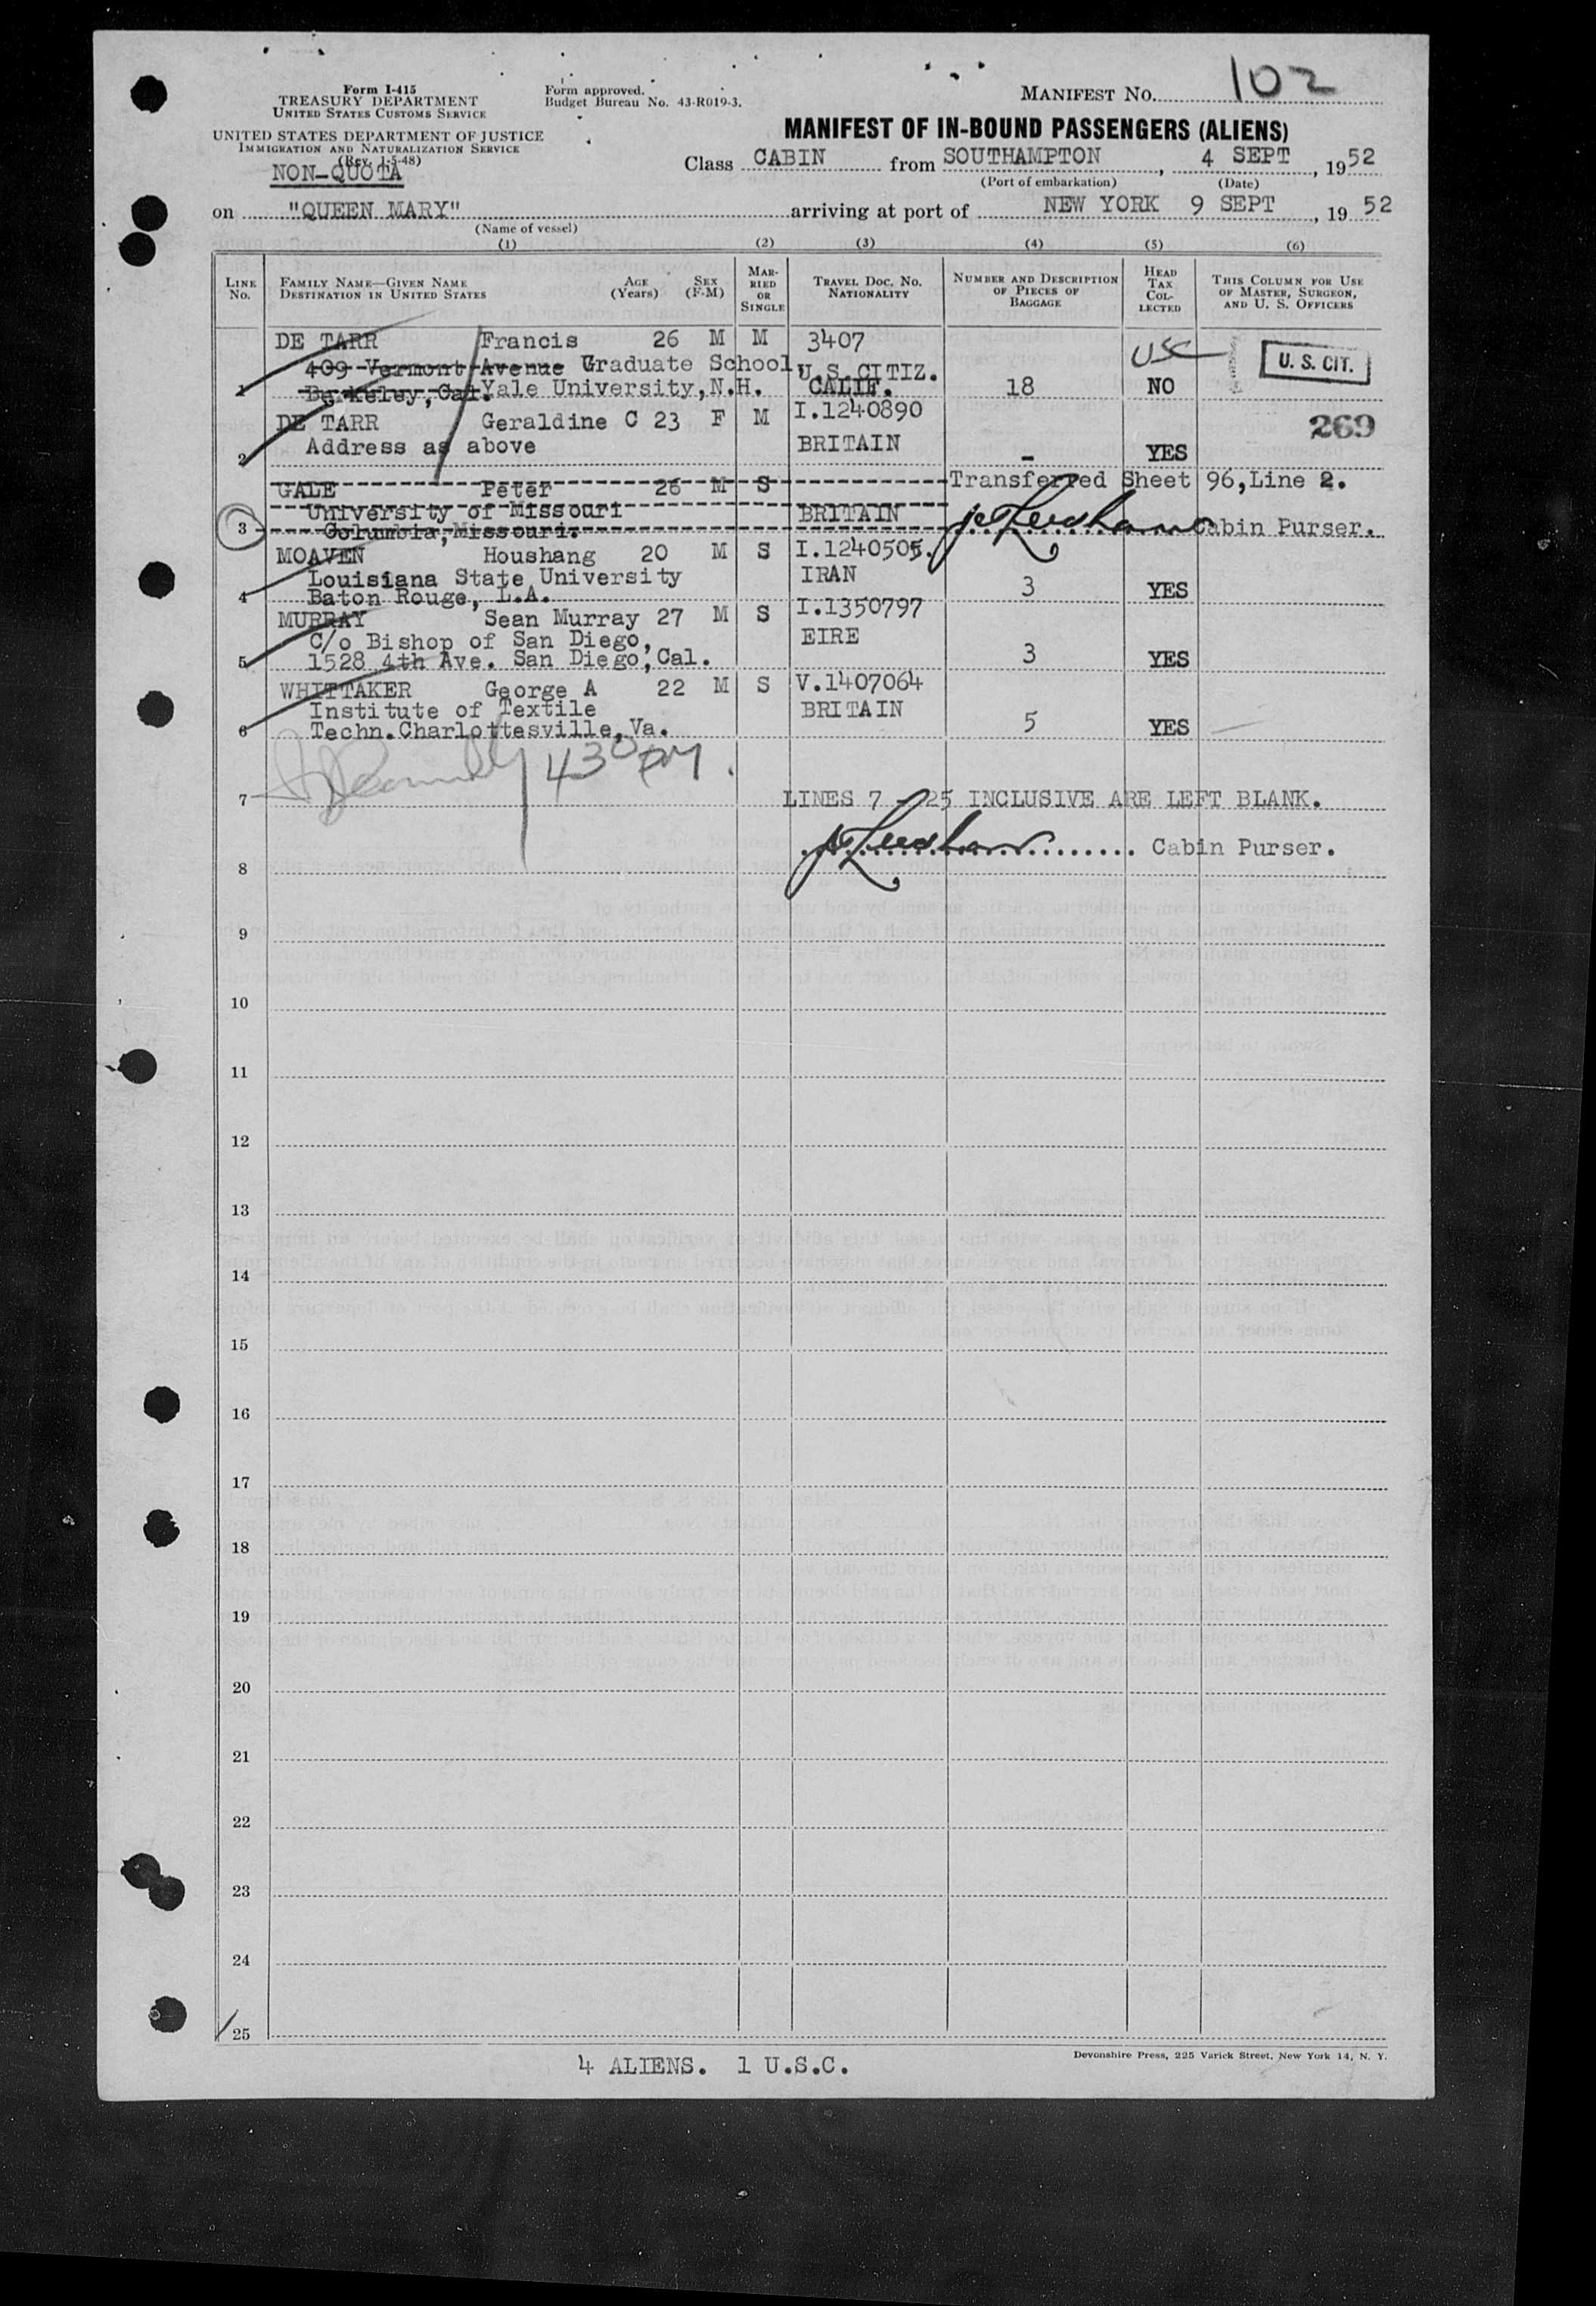 Form I-415
TREASURY DEPARTMENT
UNITED STATES CUSTOMS SERVICE
UNITED STATES DEPARTMENT OF JUSTICE
IMMIGRATION AND NATURALIZATION SERVICE
(Rev. 1-5-48)
NON-QUOTA
Form approved.
Budget Bureau No. 43-R019-3.
MANIFEST No. 102
MANIFEST OF IN-BOUND PASSENGERS (ALIENS)
Class CABIN from SOUTHAMPTON, 4 SEPT, 1952
(Port of embarkation) (Date)
on "QUEEN MARY" arriving at port of NEW YORK 9 SEPT, 1952
(Name of vessel)
(1) (2) (3) (4) (5) (6)
LINE No. FAMILY NAME—GIVEN NAME DESTINATION IN UNITED STATES AGE (Years) SEX (F-M) MARRIED OR SINGLE TRAVEL DOC. NO. NATIONALITY NUMBER AND DESCRIPTION OF PIECES OF BAGGAGE HEAD TAX COLLECTED THIS COLUMN FOR USE OF MASTER, SURGEON, AND U. S. OFFICERS
DE TARR Francis 26 M M 3407 USC U. S. CIT.
409 Vermont Avenue Graduate School, U.S.CITIZ.
1 Berkeley, Cal. Yale University, N.H. CALIF. 18 NO
DE TARR Geraldine C 23 F M I.1240890 269
2 Address as above BRITAIN - YES
GALE Peter 26 M S Transferred Sheet 96, Line 2.
University of Missouri BRITAIN
3 Columbia, Missouri. Cabin Purser.
MOAVEN Houshang 20 M S I.1240505.
Louisiana State University IRAN
4 Baton Rouge, L.A. 3 YES
MURRAY Sean Murray 27 M S I.1350797
C/o Bishop of San Diego, EIRE
5 1528 4th Ave. San Diego, Cal. 3 YES
WHITTAKER George A 22 M S V.1407064
Institute of Textile BRITAIN
6 Techn. Charlottesville, Va. 5 YES
430 PM
7 LINES 7 - 25 INCLUSIVE ARE LEFT BLANK.
8 Cabin Purser.
9
10
11
12
13
14
15
16
17
18
19
20
21
22
23
24
25
4 ALIENS. 1 U.S.C.
Devonshire Press, 225 Varick Street, New York 14, N. Y.